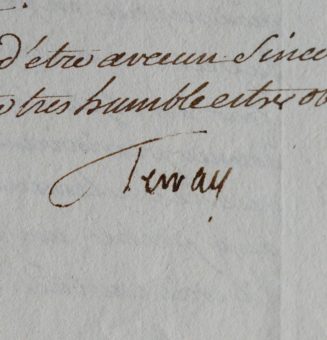 d'être avec un Sinc
très humble et très ob
Terray